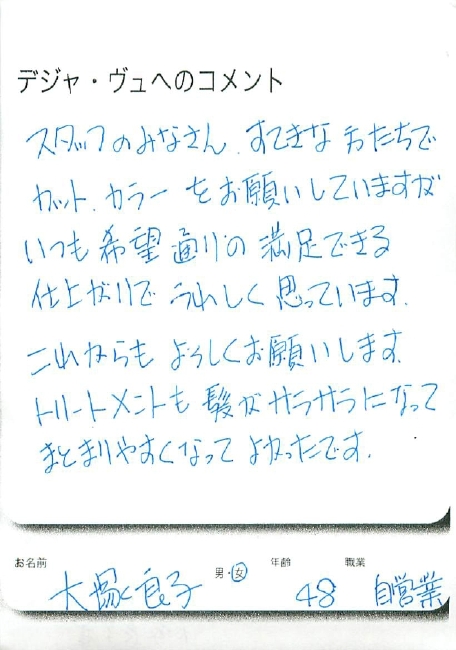 デジャ・ヴュへのコメント
スタッフのみなさん、すてきな方たちで
カット、カラーをお願いしていますが
いつも希望通りの満足できる
仕上がりでうれしく思っています。
これからもよろしくお願いします。
トリートメントも髪がサラサラになって
まとまりやすくなってよかったです。
お名前 男・女 年齢 職業
大塚良子 48 自営業